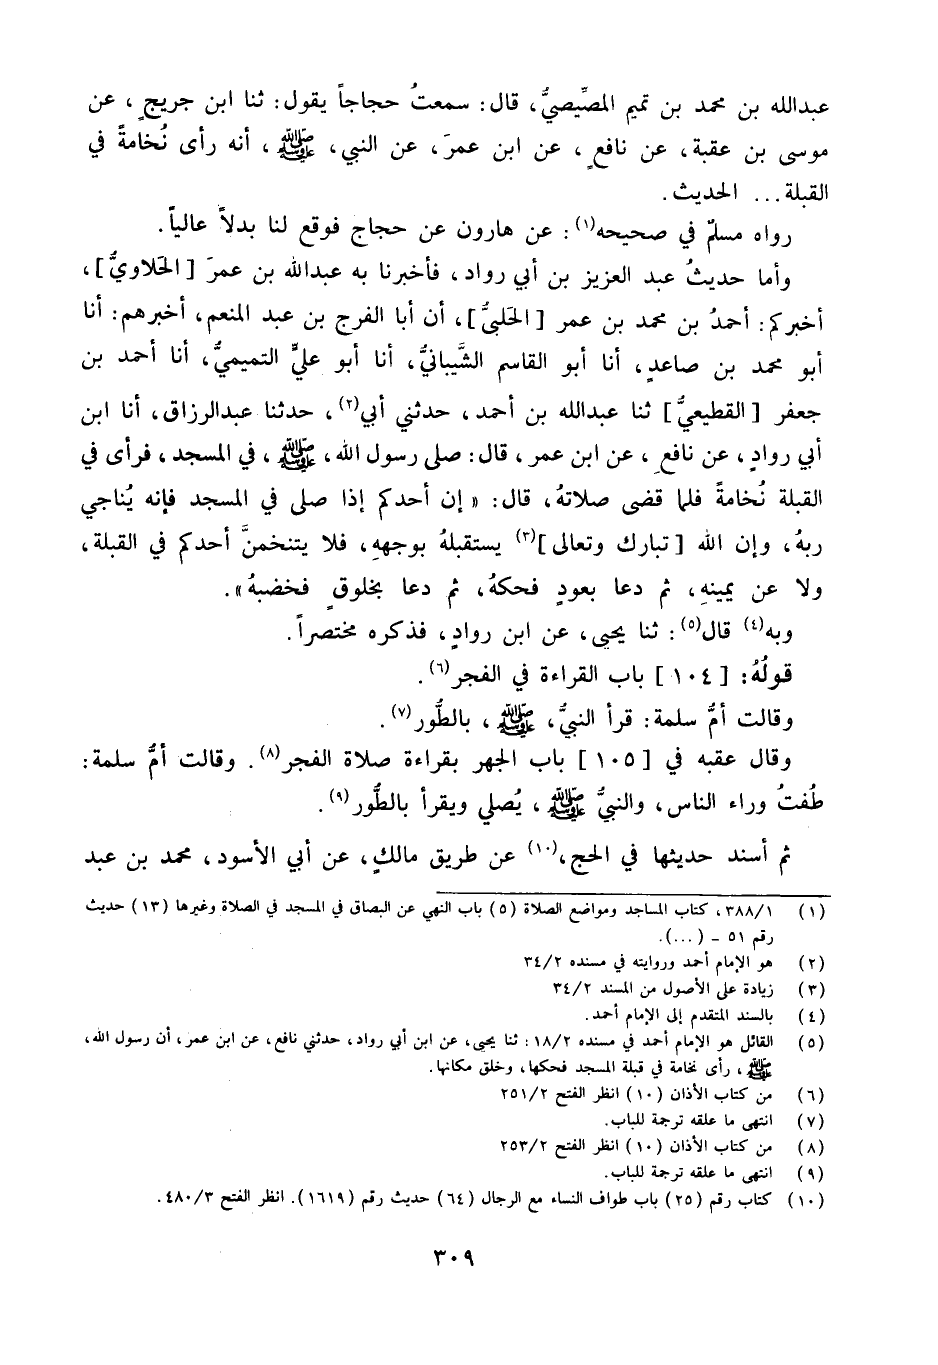 عبدالله بن محمد بن تميم المصِّيصيُّ، قال: سمعتُ حجاجاً يقول: ثنا ابن جريجٍ، عن
موسى بن عقبة، عن نافعٍ، عن ابن عمرَ، عن النبي، ﷺ، أنه رأى نُخامةً في
القبلة... الحديث.
رواه مسلمٌ في صحيحه(١): عن هارون عن حجاج فوقع لنا بدلاً عالياً.
وأما حديثُ عبد العزيز بن أبي رواد، فأخبرنا به عبدالله بن عمرَ [الحَلاويُّ]،
أخبركم: أحمدُ بن محمد بن عمر [الحَلبيُّ]، أن أبا الفرج بن عبد المنعم، أخبرهم: أنا
أبو محمد بن صاعدٍ، أنا أبو القاسم الشَّيبانيُّ، أنا أبو عليٍّ التميميُّ، أنا أحمد بن
جعفر [القطيعيُّ] ثنا عبدالله بن أحمد، حدثني أبي(٢)، حدثنا عبدالرزاق، أنا ابن
أبي روادٍ، عن نافعٍ، عن ابن عمر، قال: صلى رسول الله، ﷺ، في المسجد، فرأى في
القبلة نُخامةً فلما قضى صلاتهُ، قال: «إن أحدكم إذا صلى في المسجد فإنه يُناجي
ربهُ، وإن الله [تبارك وتعالى](٣) يستقبلهُ بوجههِ، فلا يتنخمنَّ أحدكم في القبلة،
ولا عن يمينهِ، ثم دعا بعودٍ فحكهُ، ثم دعا بخلوقٍ فخضبهُ».
وبه(٤) قال(٥): ثنا يحيى، عن ابن روادٍ، فذكره مختصراً.
قولُهُ: [١٠٤] باب القراءة في الفجر(٦).
وقالت أمُّ سلمة: قرأ النبيُّ، ﷺ، بالطُّور(٧).
وقال عقبه في [١٠٥] باب الجهر بقراءة صلاة الفجر(٨). وقالت أمُّ سلمة:
طُفتُ وراء الناس، والنبيُّ ﷺ، يُصلي ويقرأ بالطُّور(٩).
ثم أسند حديثها في الحج،(١٠) عن طريق مالكٍ، عن أبي الأسود، محمد بن عبد
(١) ٣٨٨/١، كتاب المساجد ومواضع الصلاة (٥) باب النهي عن البصاق في المسجد في الصلاة وغيرها (١٣) حديث
رقم ٥١ - (...).
(٢) هو الإمام أحمد وروايته في مسنده ٣٤/٢
(٣) زيادة على الأصول من المسند ٣٤/٢
(٤) بالسند المتقدم إلى الإمام أحمد.
(٥) القائل هو الإمام أحمد في مسنده ١٨/٢: ثنا يحيى، عن ابن أبي رواد، حدثني نافع، عن ابن عمر، أن رسول الله،
ﷺ، رأى نخامة في قبلة المسجد فحكها، وخلق مكانها.
(٦) من كتاب الأذان (١٠) انظر الفتح ٢٥١/٢
(٧) انتهى ما علقه ترجمة للباب.
(٨) من كتاب الأذان (١٠) انظر الفتح ٢٥٣/٢
(٩) انتهى ما علقه ترجمة للباب.
(١٠) كتاب رقم (٢٥) باب طواف النساء مع الرجال (٦٤) حديث رقم (١٦١٩). انظر الفتح ٤٨٠/٣.
٣٠٩